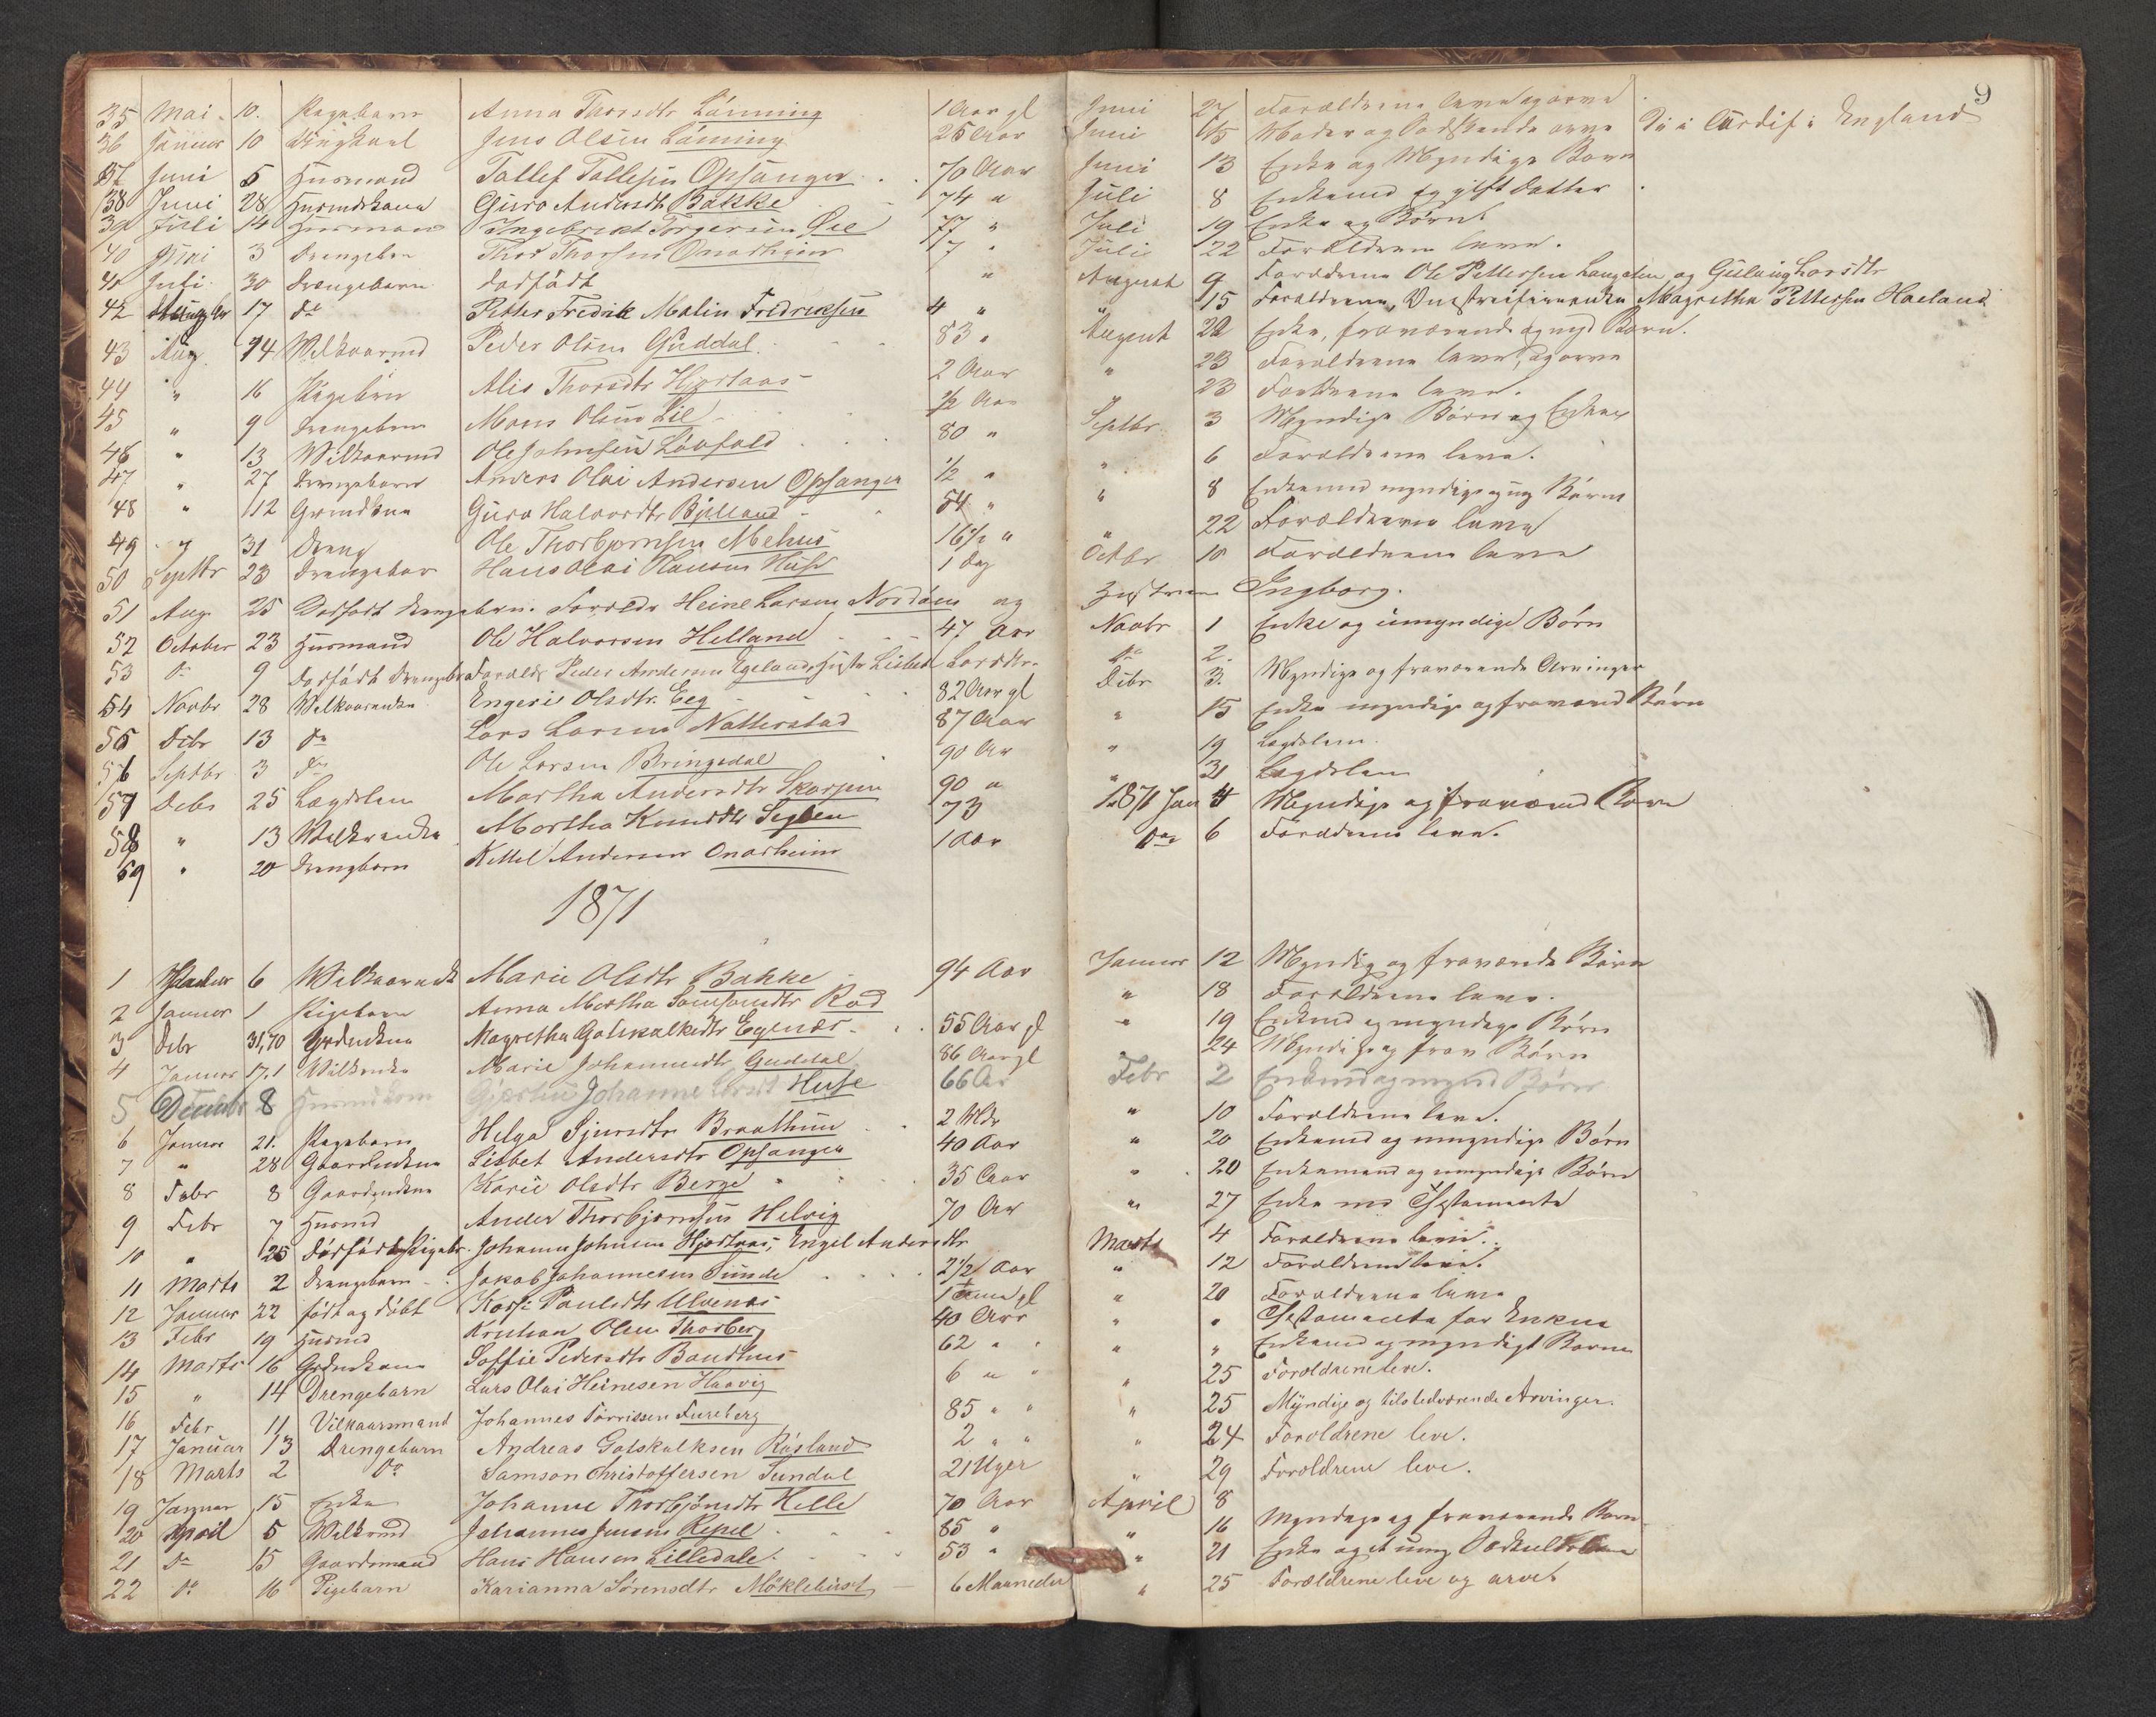 9
35 Mai 10. Pigebarn Anna Thorsdtr Lønning 1 Aar gl Juni 27 Forældrene leve og arve
36 Januar 10 Ungkarl Jens Olsen Lønning 25 Aar Juni Moder og Sødskende arve Dø i Cardif i England
37 Juni 5 Husmand Tollef Tollefsen Opsanger 70 Aar Juni 13 Enke og Myndige Børn
38 Juni 28 Husmdskone Guro Andersdtr Bakke 74 " Juli 8 Enkemd og gift datter
39 Juli 14 Husmand Ingebrekt Torgersen Øie 77 " Juli 19 Enke og Børn
40 Juni 3 Drengebn Thor Thorsen Onarheim 7 " Juli 22 Forældrene leve.
41 Juli 30 Drengebarn dødfødt " August 9 Forældrene Ole Pettersen Langeten og Gulaug Larsdtr
42 17 do Petter Fredrik Malin Fredriksen 4 " " 15 Forældrene, Omstreiferenken Magrethe Pettersen Haaland
43 Aug. 14 Wilkaarmd Peder Olsen Guddal 83 " August 22 Enke, fraværende og myd Børn.
44 " 16 Pigebarn Alis Thorsdtr Hjortaas 2 Aar " 23 Forældrene leve, og arve
45 " 9 Drengebarn Mons Olsen Lie ½ Aar 23 Forældrene leve.
46 " 13 Wilkaarmd Ole Johnsen Løvfald 80 " Septbr 3 Myndige Børn og Enken
47 " 27 Drengebarn Anders Olai Andersen Opsanger ½ " " 6 Forældrene leve.
48 " 12 Grmdkone Guro Halvordtr Bjelland 54 " " 8 Enkemd myndige og umg Børn
49 " 31 Dreng Ole Thorbjørnsen Mehus 16½ " " 22 Forældrene leve
50 Septbr 23 Drengebar Hans Olai Hansen Huse 1 Dag Octbr 10 Forældrene leve
51 Aug 25 Dødfødt Drengebarn. Foreldr Heine Larsen Nordaas og Hustruen Ingborg.
52 October 23 Husmand Ole Halvorsen Helland 47 Aar Novbr 1 Enke og umyndige Børn
53 do 9 dødfødt Drengebn Foreldr Peder Andersen Egeland Hustr Lisbet Larsdtr. do 2.
54 Novbr 28 Wilkaarenke Engeri Olsdtr. Eeg 82 Aar gl Debr 3. Myndige og fraværende Arvinger
55 Debr 13 do Lars Larsen Natterstad 87 Aar " 15 Enke myndige og fraværend Børn
56 Septbr 3 do Ole Larsen Bringedal 90 Aar " 19 Lægdslem.
57 Debr 25 Lægdslem Martha Andersdtr Skorpen 90 " " 31 Lægdslem
58 " 13 Wilkrenke Martha Knudsdtr Seglem 73 1871 Jan 4 Myndige og fraværend Børn
59 " 20 Drengbarn Kettel Andersen Onarheim 1 Aar do 6 Forældrene leve.
1871
1 Januar 6 Wilkaarenke Marie Olsdtr Bakke 94 Aar Januar 12 Myndig og fraværende Børn
2 Januar 1 Pigebarn Anna Martha Samsonsdtr Rød " 18 Forældrene leve.
3 Debr 31,70 Grdmdkne Magretha Gotskalksdtr Egenæs 55 Aar gl " 19 Enkemd og myndige Børn
4 Januar 17.1 Wilkrenke Marie Johannesdtr Guddal 86 Aar gl " 24 Myndige og frav Børn
5 Decembr 8 Husmdkone Gjertru Johanne Larsdt Huse 66 Aar Febr 2 Enkemd og myndi Børn
6 Januar 21. Pigebarn Helga Sjursdtr Braathun 2 Mdr " 10 Forældrene leve.
7 " 28 Gaardmdkne Lisbet Andersdtr Opsanger 40 Aar " 20 Enkemd og umyndige Børn
8 Febr 8 Gaardmdkne Kari Olsdtr Berge 35 Aar " 20 Enkemand og umyndige Børn
9 Febr 7 Husmd Anders Thorbjørnsen Helvig 70 Aar " 27 Enke med Testamente
10 " 25 dødfødt Pigebr. Johannes Johnsen Hjortaas, Engel Andersdtr Marts 4 Forældrene leve.
11 Marts 2 Drengebarn Jakob Johannesen Sunde 2½ Aar " 12 Forældrene leve.
12 Januar 22 født og døbt Kari Paulsdtr Ulvenæs 1 Time gl " 20 Forældrene leve
13 Febr 19 Husmd Kristian Olsen Thorberg 40 Aar " " Testamente for Enken
14 Marts 16 Grdmdkone Soffie Pedersdtr Bondhus 62 " " " " Enkemd og myndige Børn
15 " 14 Drengebarn Lars Olai Heinesen Haavig 6 " " " 25 Forældrene leve.
16 Febr 11, Vilkaarsmand Johannes Tørrissen Fureberg 85 " " " 25 Myndige og tilstedværende Arvinger.
17 Januar 13 Drengebarn Andreas Gotskalksen Røsland 2 " " " 24 Forældrene leve.
18 Marts 2 Do Samson Christoffersen Sundal 21 Uger " 29 Forældrene leve.
19 Januar 15 Enke Johanne Thorbjønsdtr Helle 70 Aar April 8
20 April 5 Wilkrmd Johannes Jensen Repel 85 " " 16 Myndige og fraværende Børn
21 do 15 Gaardmand Hans Hansen Lilledale 53 " " 21 Enke og et umg
22 do 16 Pigebarn Karianna Sørensdtr Møklebust 6 Maaneder " 25 Forældrene leve og arvet